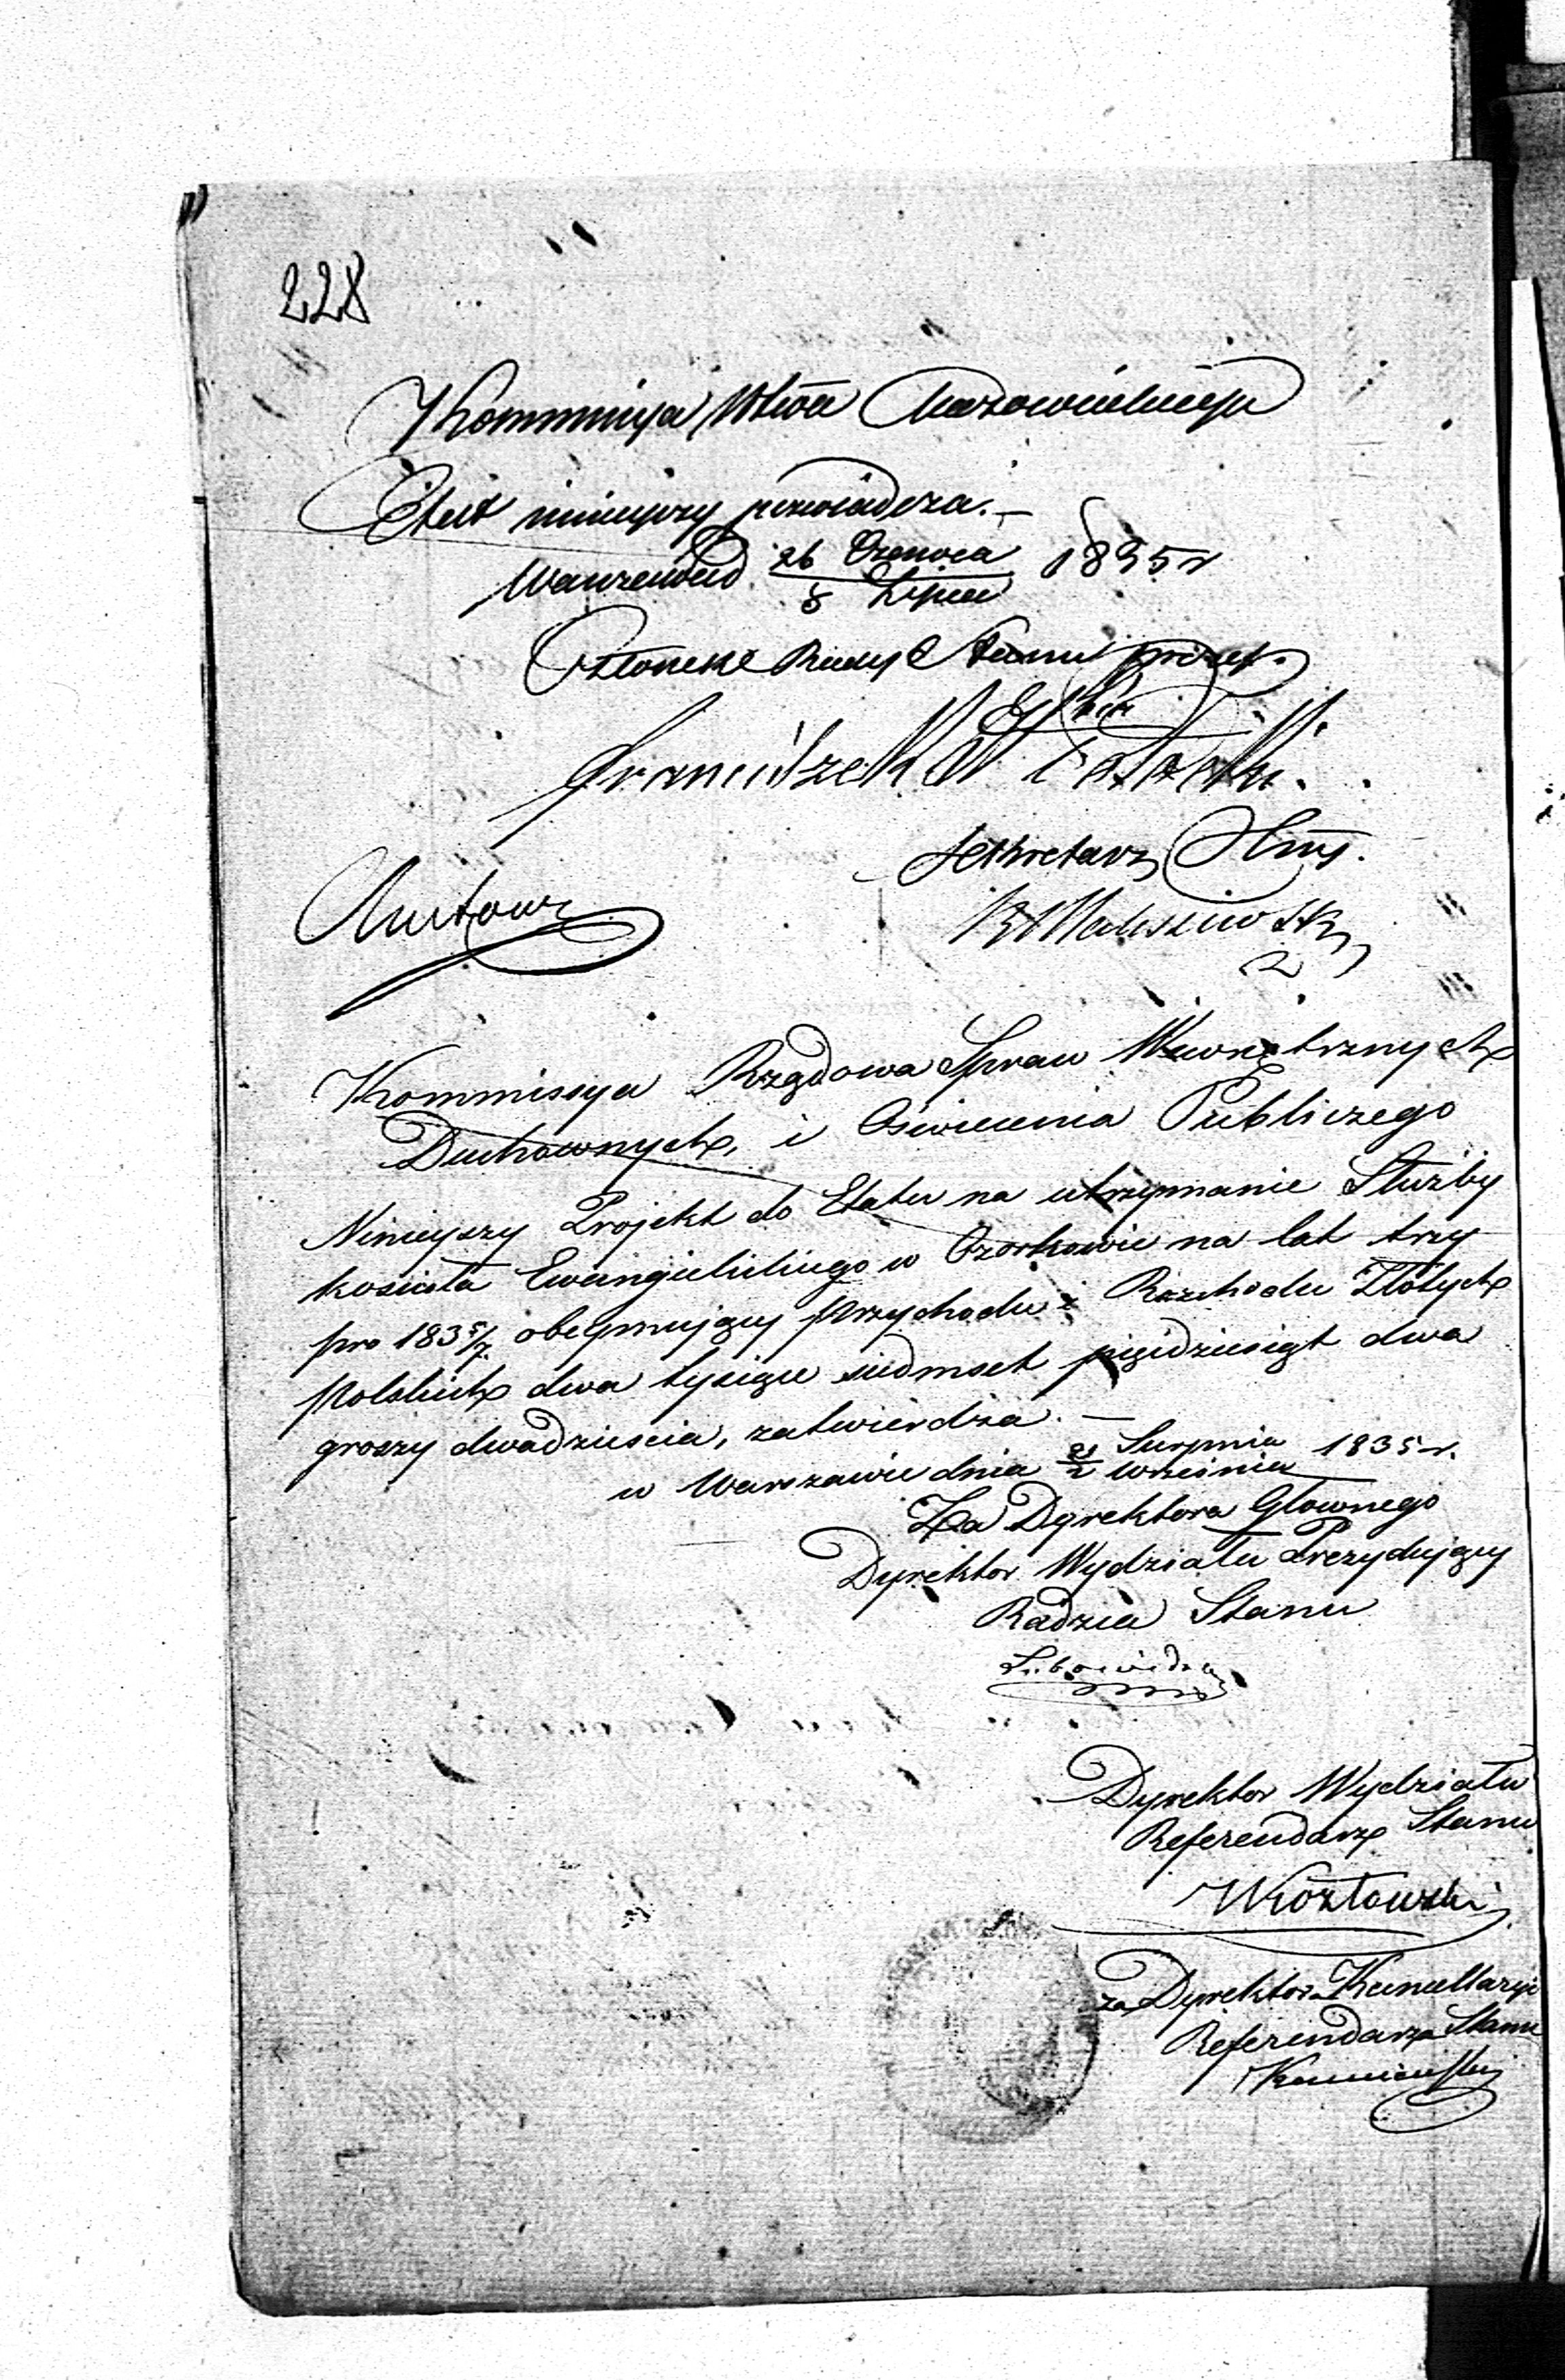 228
Kommissya Wtwa Mazowieckiego
Etat niniejszy poświadcza.—
Warszawa d. 26 Czerwca 1835 r
8 Lipca
Członek Rady Stanu prezes
Franciszek
Sekretarz
Kommissya Rządowa Spraw Wewnętrznych
Duchownych, i Oświecenia Publicznego
Ninieyszy Projekt do Etatu na utrzymanie Służby
kościoła Ewangielickiego w Ozorkowie na lat trzy
pro 1835/7 obeymujący przychodu i Rozchodu Złotych
Polskich dwa tysiące siedmset pięćdziesiąt dwa
groszy dwadzieścia, zatwierdza. —
w Warszawie dnia 21 Sierpnia 1835 r.
2 Września
Za Dyrektora Głownego
Dyrektor Wydziału Prezydujący
Radzca Stanu
Lubowidzki
Dyrektor Wydziału
Referendarz Stanu
Kozłowski
za Dyrektora Kancellaryi
Referendarza Stanu